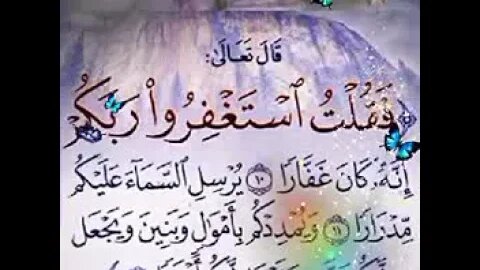 قَالَ تَعَالَىٰ:
﴿فَقُلْتُ ٱسْتَغْفِرُوا۟ رَبَّكُمْ
إِنَّهُۥ كَانَ غَفَّارًا ۝١٠ يُرْسِلِ ٱلسَّمَآءَ عَلَيْكُم
مِّدْرَارًا ۝١١ وَيُمْدِدْكُم بِأَمْوَٰلٍ وَبَنِينَ وَيَجْعَل